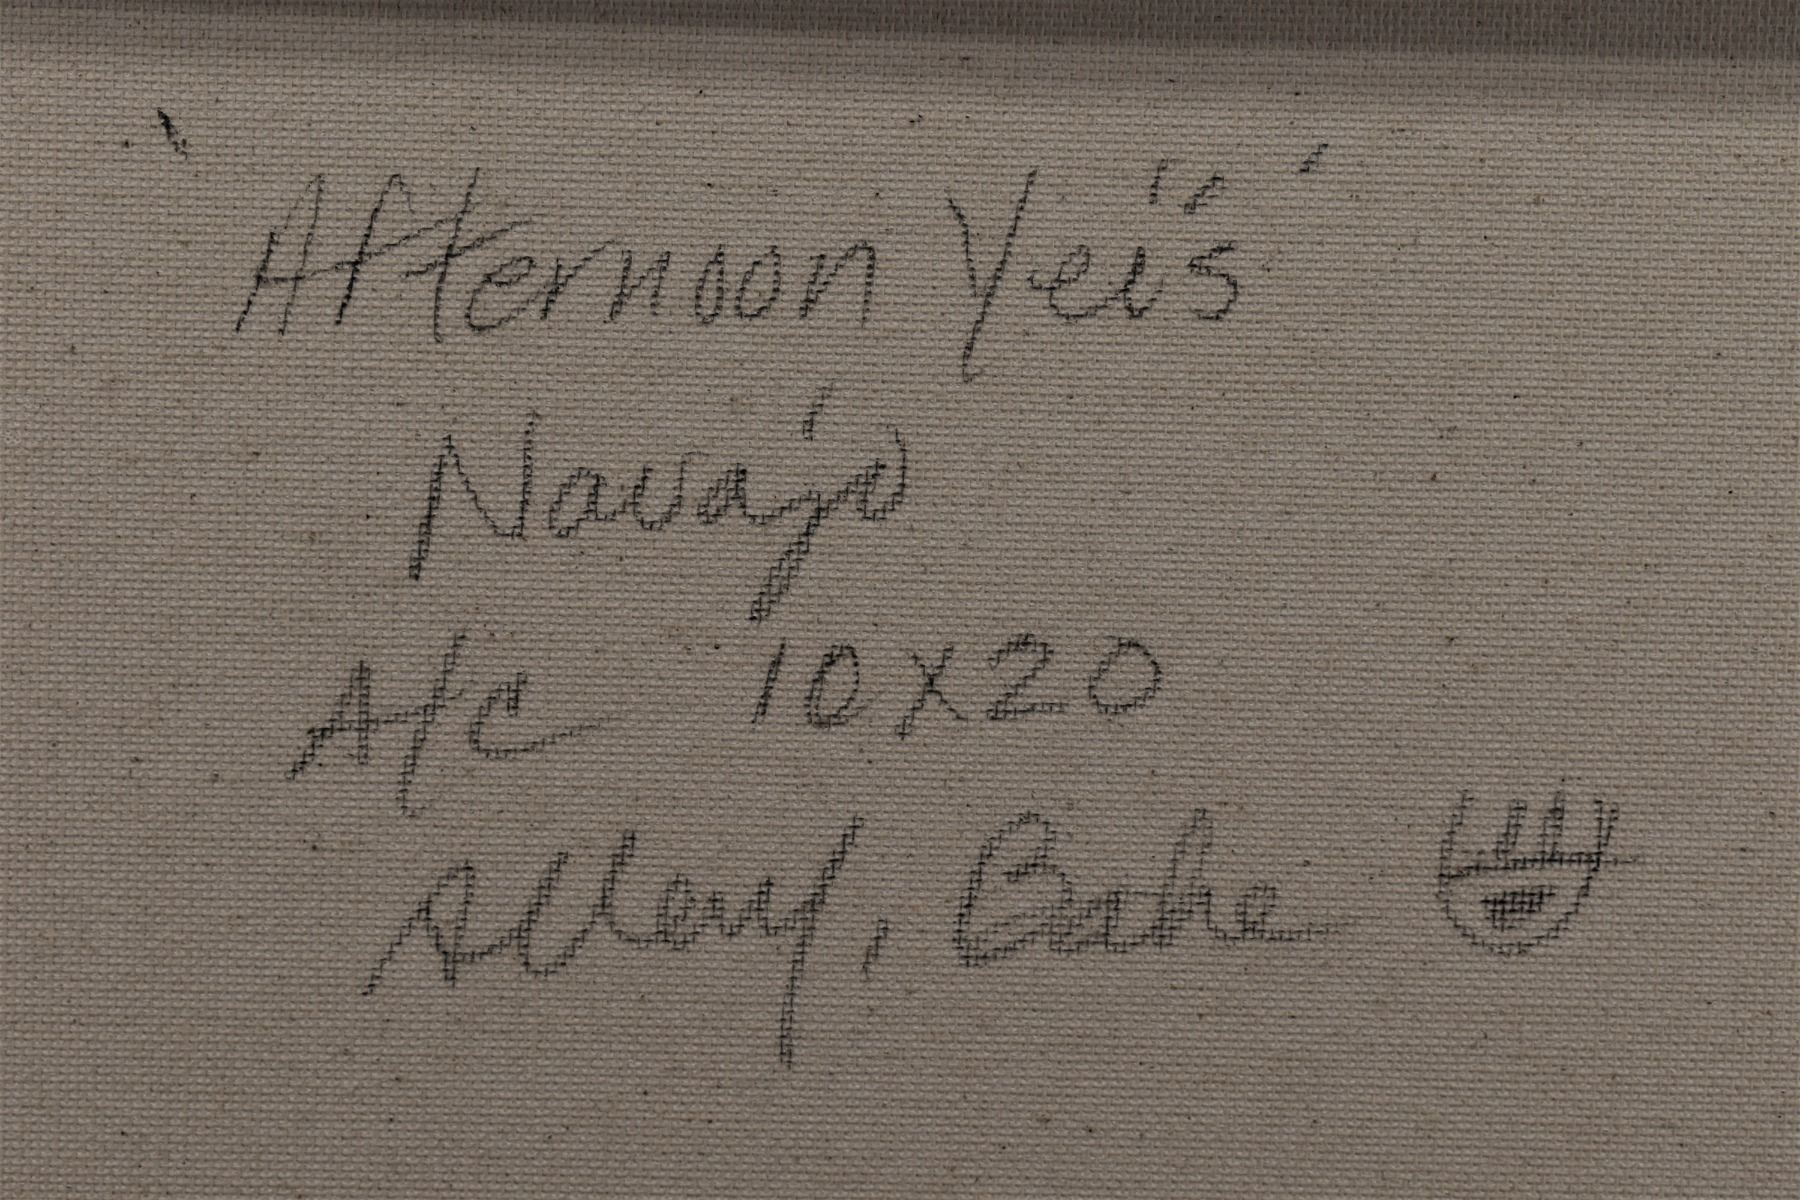 "Afternoon Yei's"
Navajo
A/C 10x20
Alleny, Bahe